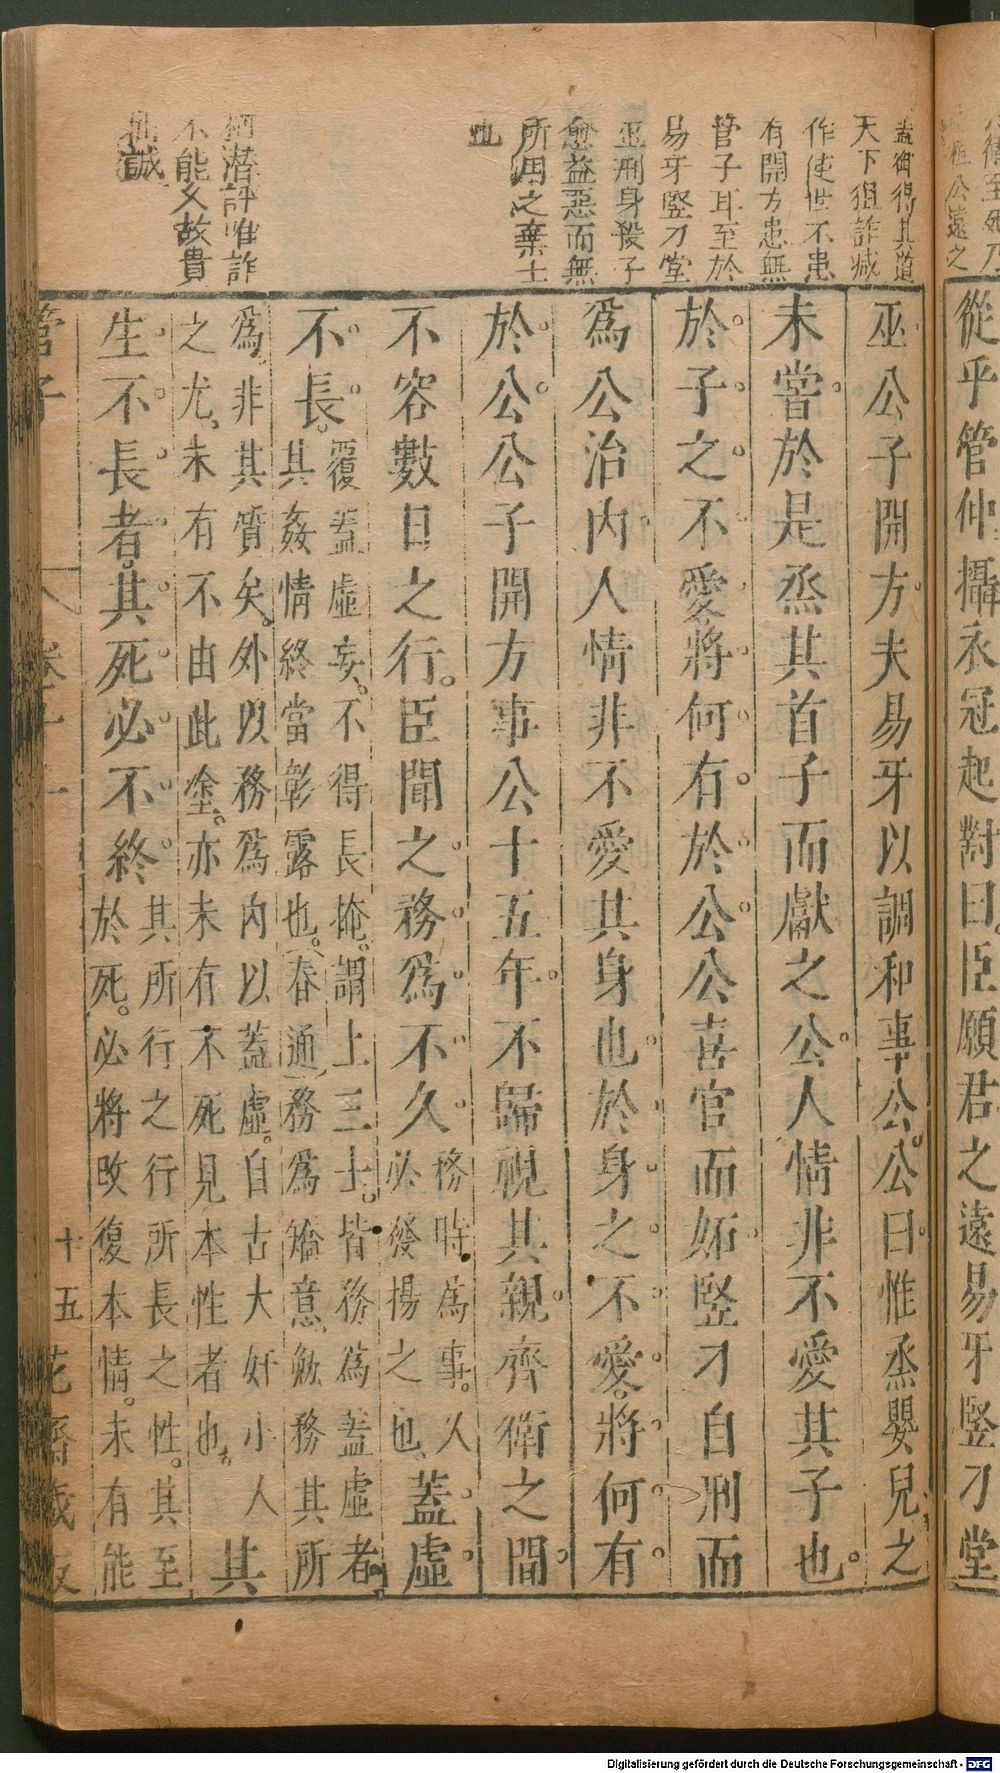 從乎管仲攝衣冠起對曰臣願君之遠易牙竪刁堂
巫公子開方夫易牙以調和事公公曰惟烝嬰兒之
未嘗於是烝其首子而獻之公人情非不愛其子也
於子之不愛將何有於公公喜宮而妬竪刁自刑而
為公治内人情非不愛其身也於身之不愛將何有
於公公子開方事公十五年不歸視其親齊衛之間
不容數日之行臣聞之務為不久
務時為事人
必發揚之也
蓋虛
不長
覆蓋虛妄不得長掩謂上三士皆務為蓋虛者
其姦情終當彰露也春通務為矯意歛務其所
為非其質矣外以務為内以蓋虛自古大奸小人
之尤未有不由此塗亦未有不死見本性者也
其
生不長者其死必不終
其所行之行所長之性其至
於死必將改復本情未有能
管子
卷十一
十五
花齋藏板
桓公遠之
蓋御得其道
天下狙詐咸
作使世不患
有開方患無
管子耳至於
易牙竪刁堂
巫刑身殺子
愈益惡而無
所用之棄士
也
潜評唯詐
不能久故貴
誠
Digitalisierung gefördert durch die Deutsche Forschungsgemeinschaft - DFG